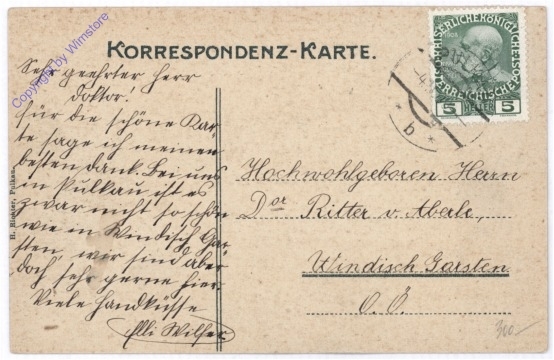 Copyright by Wimstore
KORRESPONDENZ-KARTE.
Sehr geehrter Herr
Doktor!
für die schöne Kar-
te sage ich meinen
besten Dank. Bei uns
in Pulkau ist es
zwar nicht so schön
wie in Windisch Gar-
sten, wir sind aber
doch sehr gerne hier.
Viele Handküsse
B. Richter, Pulkau.
KAISERLICHE KÖNIGLICHE
ÖSTERREICHISCHE POST
1908
5 HELLER 5
b *
Hochwohlgeboren Herrn
Dor Ritter v. Aberle,
Windisch Garsten
O.Ö.
300.-